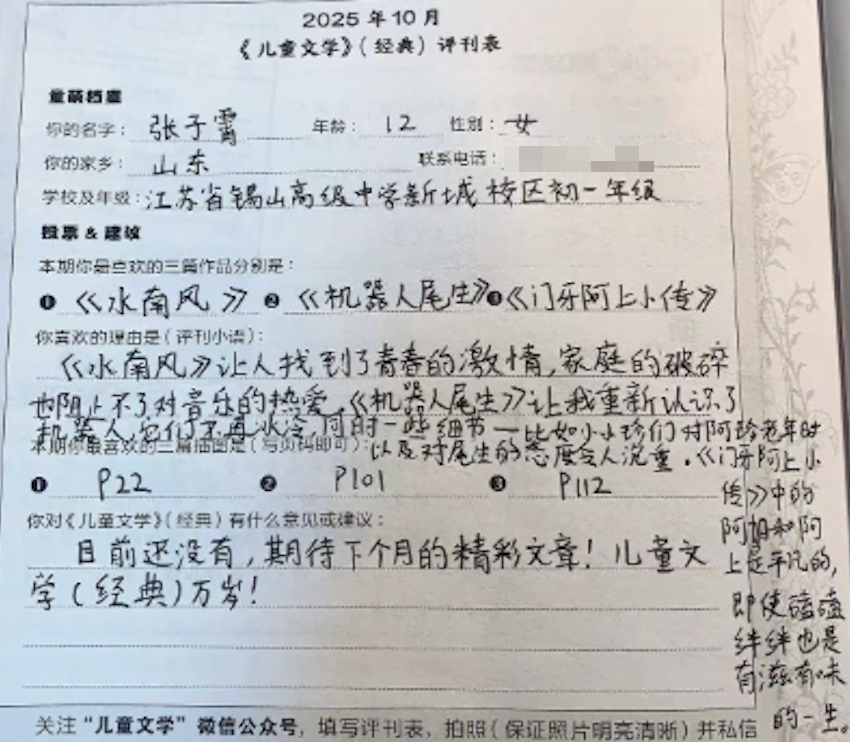 2025 年 10 月
《儿童文学》(经典) 评刊表
童萌档案
你的名字: 张子霄 年龄: 12 性别: 女
你的家乡: 山东 联系电话:
学校及年级: 江苏省锡山高级中学新城校区初一年级
投票 & 建议
本期你最喜欢的三篇作品分别是:
❶《水南风》❷《机器人尾生》❸《门牙阿上小传》
你喜欢的理由是(评刊小语):
《水南风》让人找到了青春的激情,家庭的破碎
也阻止不了对音乐的热爱。《机器人尾生》让我重新认识了
机器人,它们不再冰冷,同时一些细节——比如小小孩们对阿 老年时
以及对尾生的态度令人沉重。《门牙阿上小
传》中的
阿 和阿
上是平凡的,
即使磕磕
绊绊也是
有滋有味
的一生。
本期你最喜欢的三篇插图是(写页码即可):
❶ P22 ❷ P101 ❸ P112
你对《儿童文学》(经典)有什么意见或建议:
目前还没有,期待下个月的精彩文章!儿童文
学(经典)万岁!
关注“儿童文学”微信公众号,填写评刊表,拍照(保证照片明亮清晰)并私信